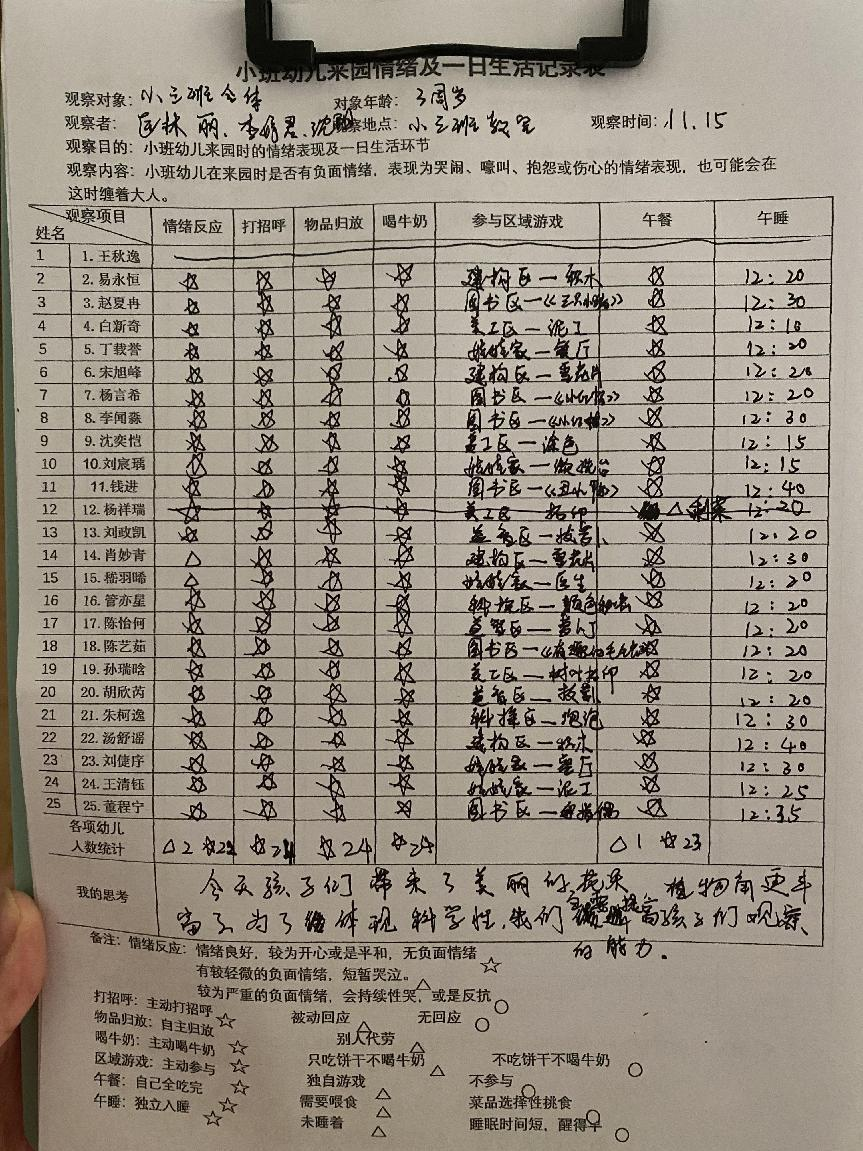 小班幼儿来园情绪及一日生活记录表
观察对象：小三班全体 对象年龄：3周岁
观察者： 林丽、李 观察地点：小三班教室 观察时间：11.15
观察目的：小班幼儿来园时的情绪表现及一日生活环节
观察内容：小班幼儿在来园时是否有负面情绪，表现为哭闹、嚎叫、抱怨或伤心的情绪表现，也可能会在
这时缠着大人。
观察项目 姓名 情绪反应 打招呼 物品归放 喝牛奶 参与区域游戏 午餐 午睡
1 1. 王秋逸
2 2. 易永恒 ☆ ☆ ☆ ☆ 建构区—积木 ☆ 12：20
3 3. 赵夏冉 ☆ ☆ ☆ ☆ 图书区—《三只小猪》 ☆ 12：30
4 4. 白新奇 ☆ ☆ ☆ ☆ 美工区—泥工 ☆ 12：10
5 5. 丁载誉 ☆ ☆ ☆ ☆ 娃娃家—餐厅 ☆ 12：20
6 6. 宋旭峰 ☆ ☆ ☆ ☆ 建构区—雪花片 ☆ 12：20
7 7. 杨言希 ☆ ☆ ☆ ☆ 图书区—《小红帽》 ☆ 12：20
8 8. 李闻淼 ☆ ☆ ☆ ☆ 图书区—《小红帽》 ☆ 12：30
9 9. 沈奕恺 ☆ ☆ ☆ ☆ 美工区—涂色 ☆ 12：15
10 10. 刘宸瑀 ☆ ☆ ☆ ☆ 娃娃家—梳妆台 ☆ 12：15
11 11. 钱进 ☆ ☆ ☆ ☆ 图书区—《丑小鸭》 ☆ 12：40
12 12. 杨祥瑞 ☆ ☆ ☆ ☆ 美工区—拓印 △剩菜 12：20
13 13. 刘政凯 ☆ ☆ ☆ ☆ 益智区— ☆ 12：20
14 14. 肖妙青 △ ☆ ☆ ☆ 建构区—雪花片 ☆ 12：30
15 15. 嵇羽晞 △ ☆ ☆ ☆ 娃娃家—医生 ☆ 12：20
16 16. 管亦星 ☆ ☆ ☆ ☆ 科探区—颜色 ☆ 12：20
17 17. 陈怡何 ☆ ☆ ☆ ☆ 益智区— ☆ 12：20
18 18. 陈艺茹 ☆ ☆ ☆ ☆ 图书区—《有趣的 ☆ 12：20
19 19. 孙瑞晗 ☆ ☆ ☆ ☆ 美工区—树叶拓印 ☆ 12：20
20 20. 胡欣芮 ☆ ☆ ☆ ☆ 益智区— ☆ 12：20
21 21. 朱柯逸 ☆ ☆ ☆ ☆ 科探区—泡泡 ☆ 12：30
22 22. 汤舒谣 ☆ ☆ ☆ ☆ 建构区—积木 ☆ 12：40
23 23. 刘倢序 ☆ ☆ ☆ ☆ 娃娃家—餐厅 ☆ 12：30
24 24. 王清钰 ☆ ☆ ☆ ☆ 娃娃家—泥工 ☆ 12：25
25 25. 董程宁 ☆ ☆ ☆ ☆ 图书区— ☆ 12：35
各项幼儿
人数统计 △2 ☆22 ☆24 ☆24 ☆24 △1 ☆23
我的思考 今天孩子们带来了美丽的 植物角更丰
富了。为了体现科学性，我们 提高孩子们观察
的能力。
备注：情绪反应：情绪良好，较为开心或是平和，无负面情绪 ☆
有较轻微的负面情绪，短暂哭泣。 △
较为严重的负面情绪，会持续性哭，或是反抗 ○
打招呼：主动打招呼 ☆ 被动回应 △ 无回应 ○
物品归放：自主归放 ☆ 别人代劳 △
喝牛奶：主动喝牛奶 ☆ 只吃饼干不喝牛奶 △ 不吃饼干不喝牛奶 ○
区域游戏：主动参与 ☆ 独自游戏 △ 不参与 ○
午餐：自己全吃完 ☆ 需要喂食 △ 菜品选择性挑食 ○
午睡：独立入睡 ☆ 未睡着 △ 睡眠时间短，醒得早 ○